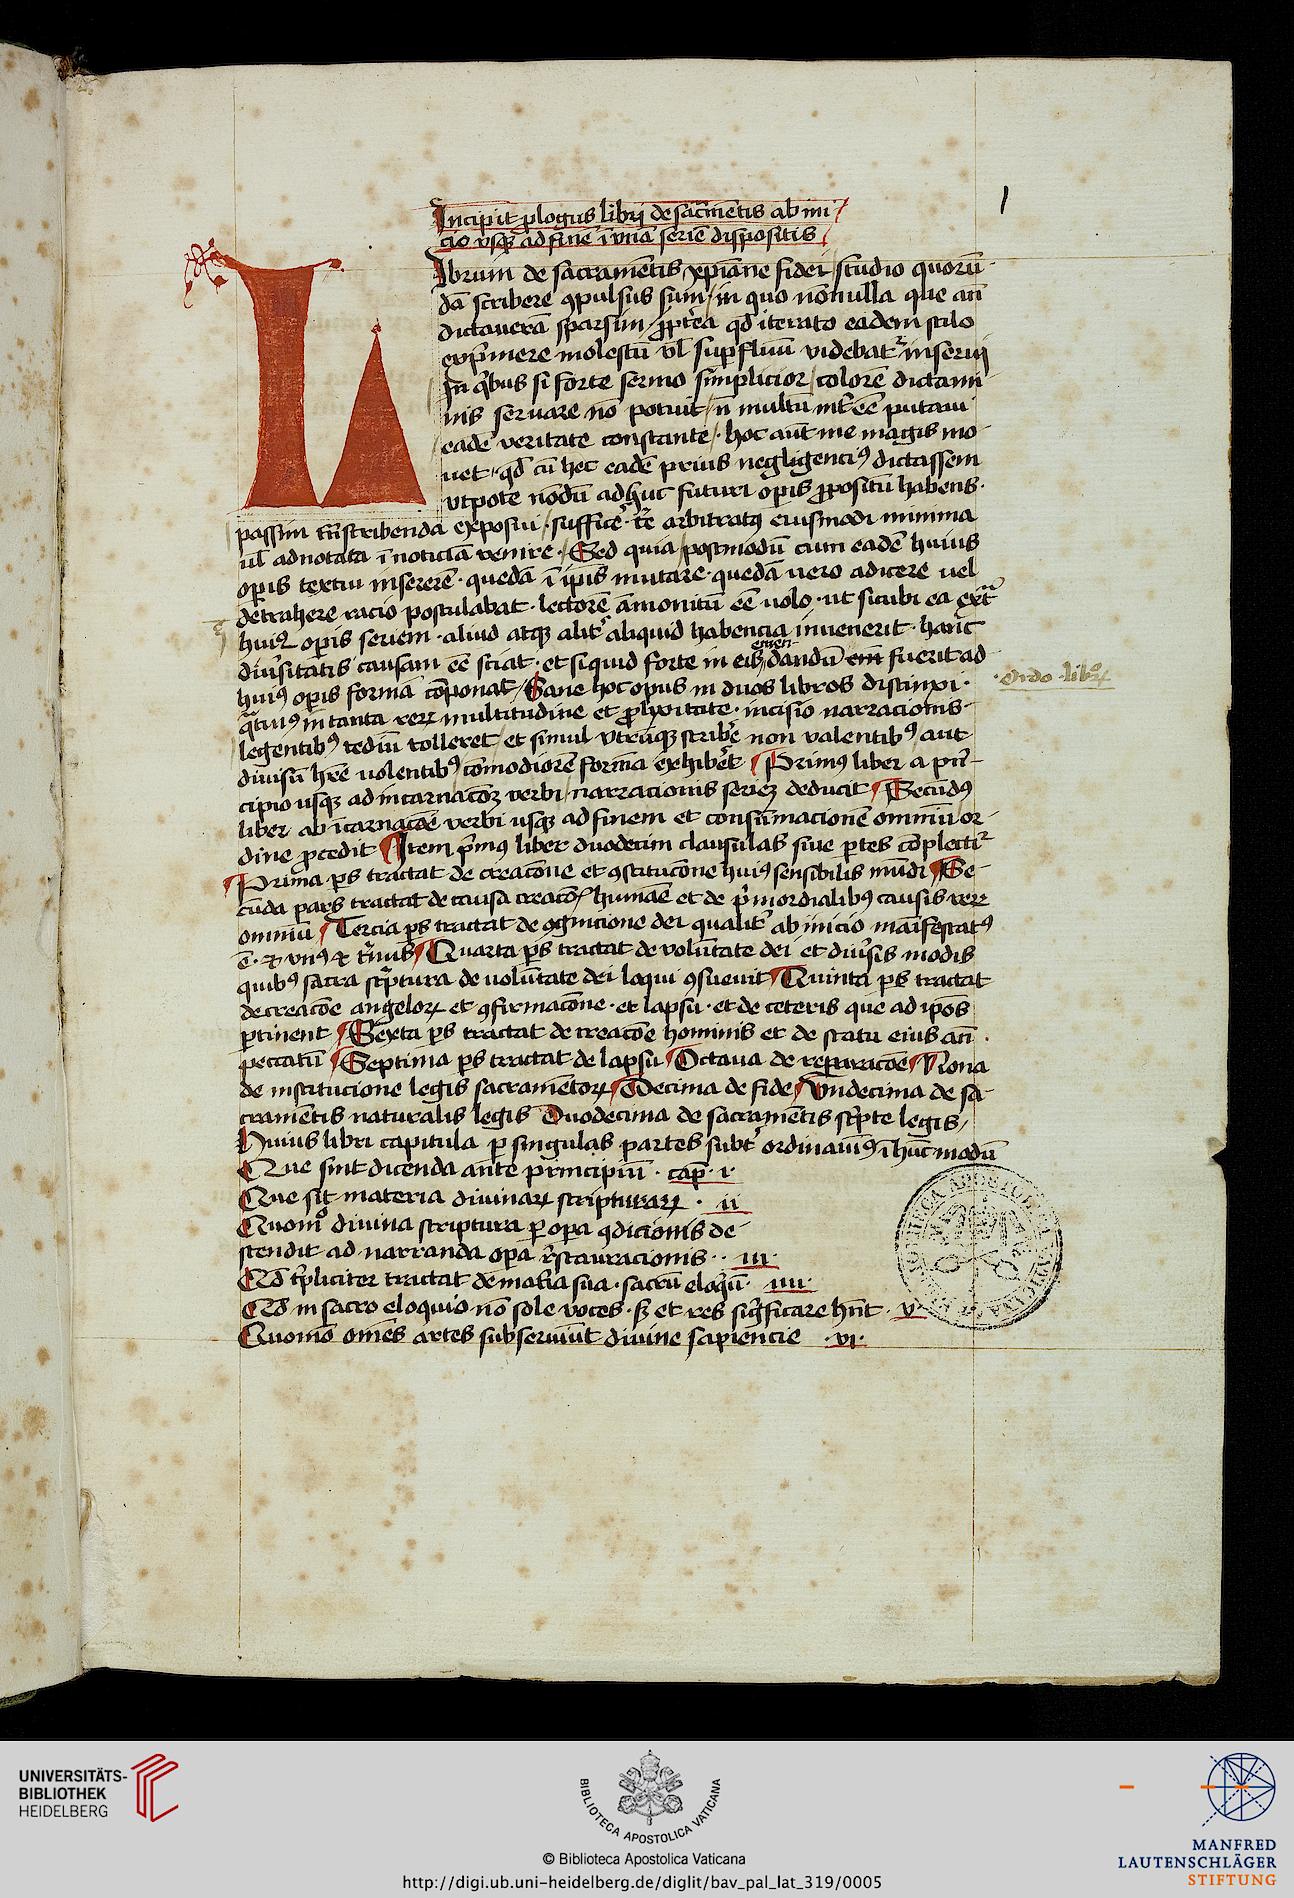 1
Incipit plogus libri de sacmentis ab ini
cio vsq ad fine i vna serie dispositis
Librum de sacramentis xpiane fidei studio quorū
dā scribere 9pulsus sum in quo nōnulla que an̄
dictauerā sparsim ppterea qd iterato eadem stilo
exprimere molestū vl supfluū videbat inserui
In qbus si forte sermo simplicior colorē dictami
nis seruare nō potuit n̄ multū int ēē putaui
eadē veritate constante hoc aūt me magis mo
uet qd cū hec eadē prius negligenci9 dictassem
vtpote nōdū adhuc futuri opis ppositū habens
passim trāscribenda exposui sufficere arbitrat9 eiusmodi minima
ul adnotata ī noticiā venire Sed quia postmodū cum eadē huius
opis textui insererē quedā ī ipis mutare quedā uero adicere uel
detrahere racio postulabat lectorē āmonitū ēē uolo ut sicubi ea ext
hui9 opis seriem aliud atq alit aliquid habencia inuenerit hanc
diusitatis causam ēē sciat et siquid forte in eis emendandū fuerit ad
hui9 opis formā cōponat Sane hoc opus in duos libros distinxi
Ordo libroꝝ
qtin9 in tanta reꝝ multitudine et plixitate incisio narracionis
legentib9 tediū tolleret et simul vtrūq scribe non valentib9 aut
diuisū hrē uolentib9 cōmodiorē formā exhibet Prim9 liber a prin
cipio usq ad incarnacōꝫ verbi narracionis serieꝫ deducit Secūd9
liber ab īcarnacōe verbi usq ad finem et consūmacionē omniū or
dine pcedit Item prim9 liber duodecim clausulas siue ptes cōplectit
Prima ps tractat de creacōne et 9stitucōne hui9 sensibilis mūdi Se
cūda pars tractat de causa creacōis humāe et de pmordialib9 causis reꝝ
omniū Tercia ps tractat de 9gnicione dei qualit ab inicio māifestat9
ē et vn9 et trin9 Quarta ps tractat de volūtate dei et diusis modis
quib9 sacra scptura de volūtate dei loqui 9sueuit Quinta ps tractat
de creacōe angeloꝝ et 9firmacōne et lapsu et de ceteris que ad ipos
ptinent Sexta ps tractat de creacōe hominis et de statu eius an̄
peccatū Septima ps tractat de lapsu Octaua de reparacōe Nona
de institucione legis sacramētoꝝ Decima de fide Vndecima de sa
cramētis naturalis legis Duodecima de sacramētis scpte legis
Huius libri capitula p singulas partes subt ordinauim9 ī hūc modū
Que sint dicenda ante principiū cap i
Que sit materia diuinaꝝ scripturaꝝ ii
Quomō diuina scriptura p opa 9dicionis de
scendit ad narranda opa restauracionis iii
Qd tpliciter tractat de matia sua sacrū eloqū iiii
Qd in sacro eloquio nō sole voces sꝫ et res significare hnt v
Quomō omēs artes subseruiūt diuine sapiencie vi
UNIVERSITÄTS-
BIBLIOTHEK
HEIDELBERG
BIBLIOTECA APOSTOLICA VATICANA
© Biblioteca Apostolica Vaticana
http://digi.ub.uni-heidelberg.de/diglit/bav_pal_lat_319/0005
MANFRED
LAUTENSCHLÄGER
STIFTUNG